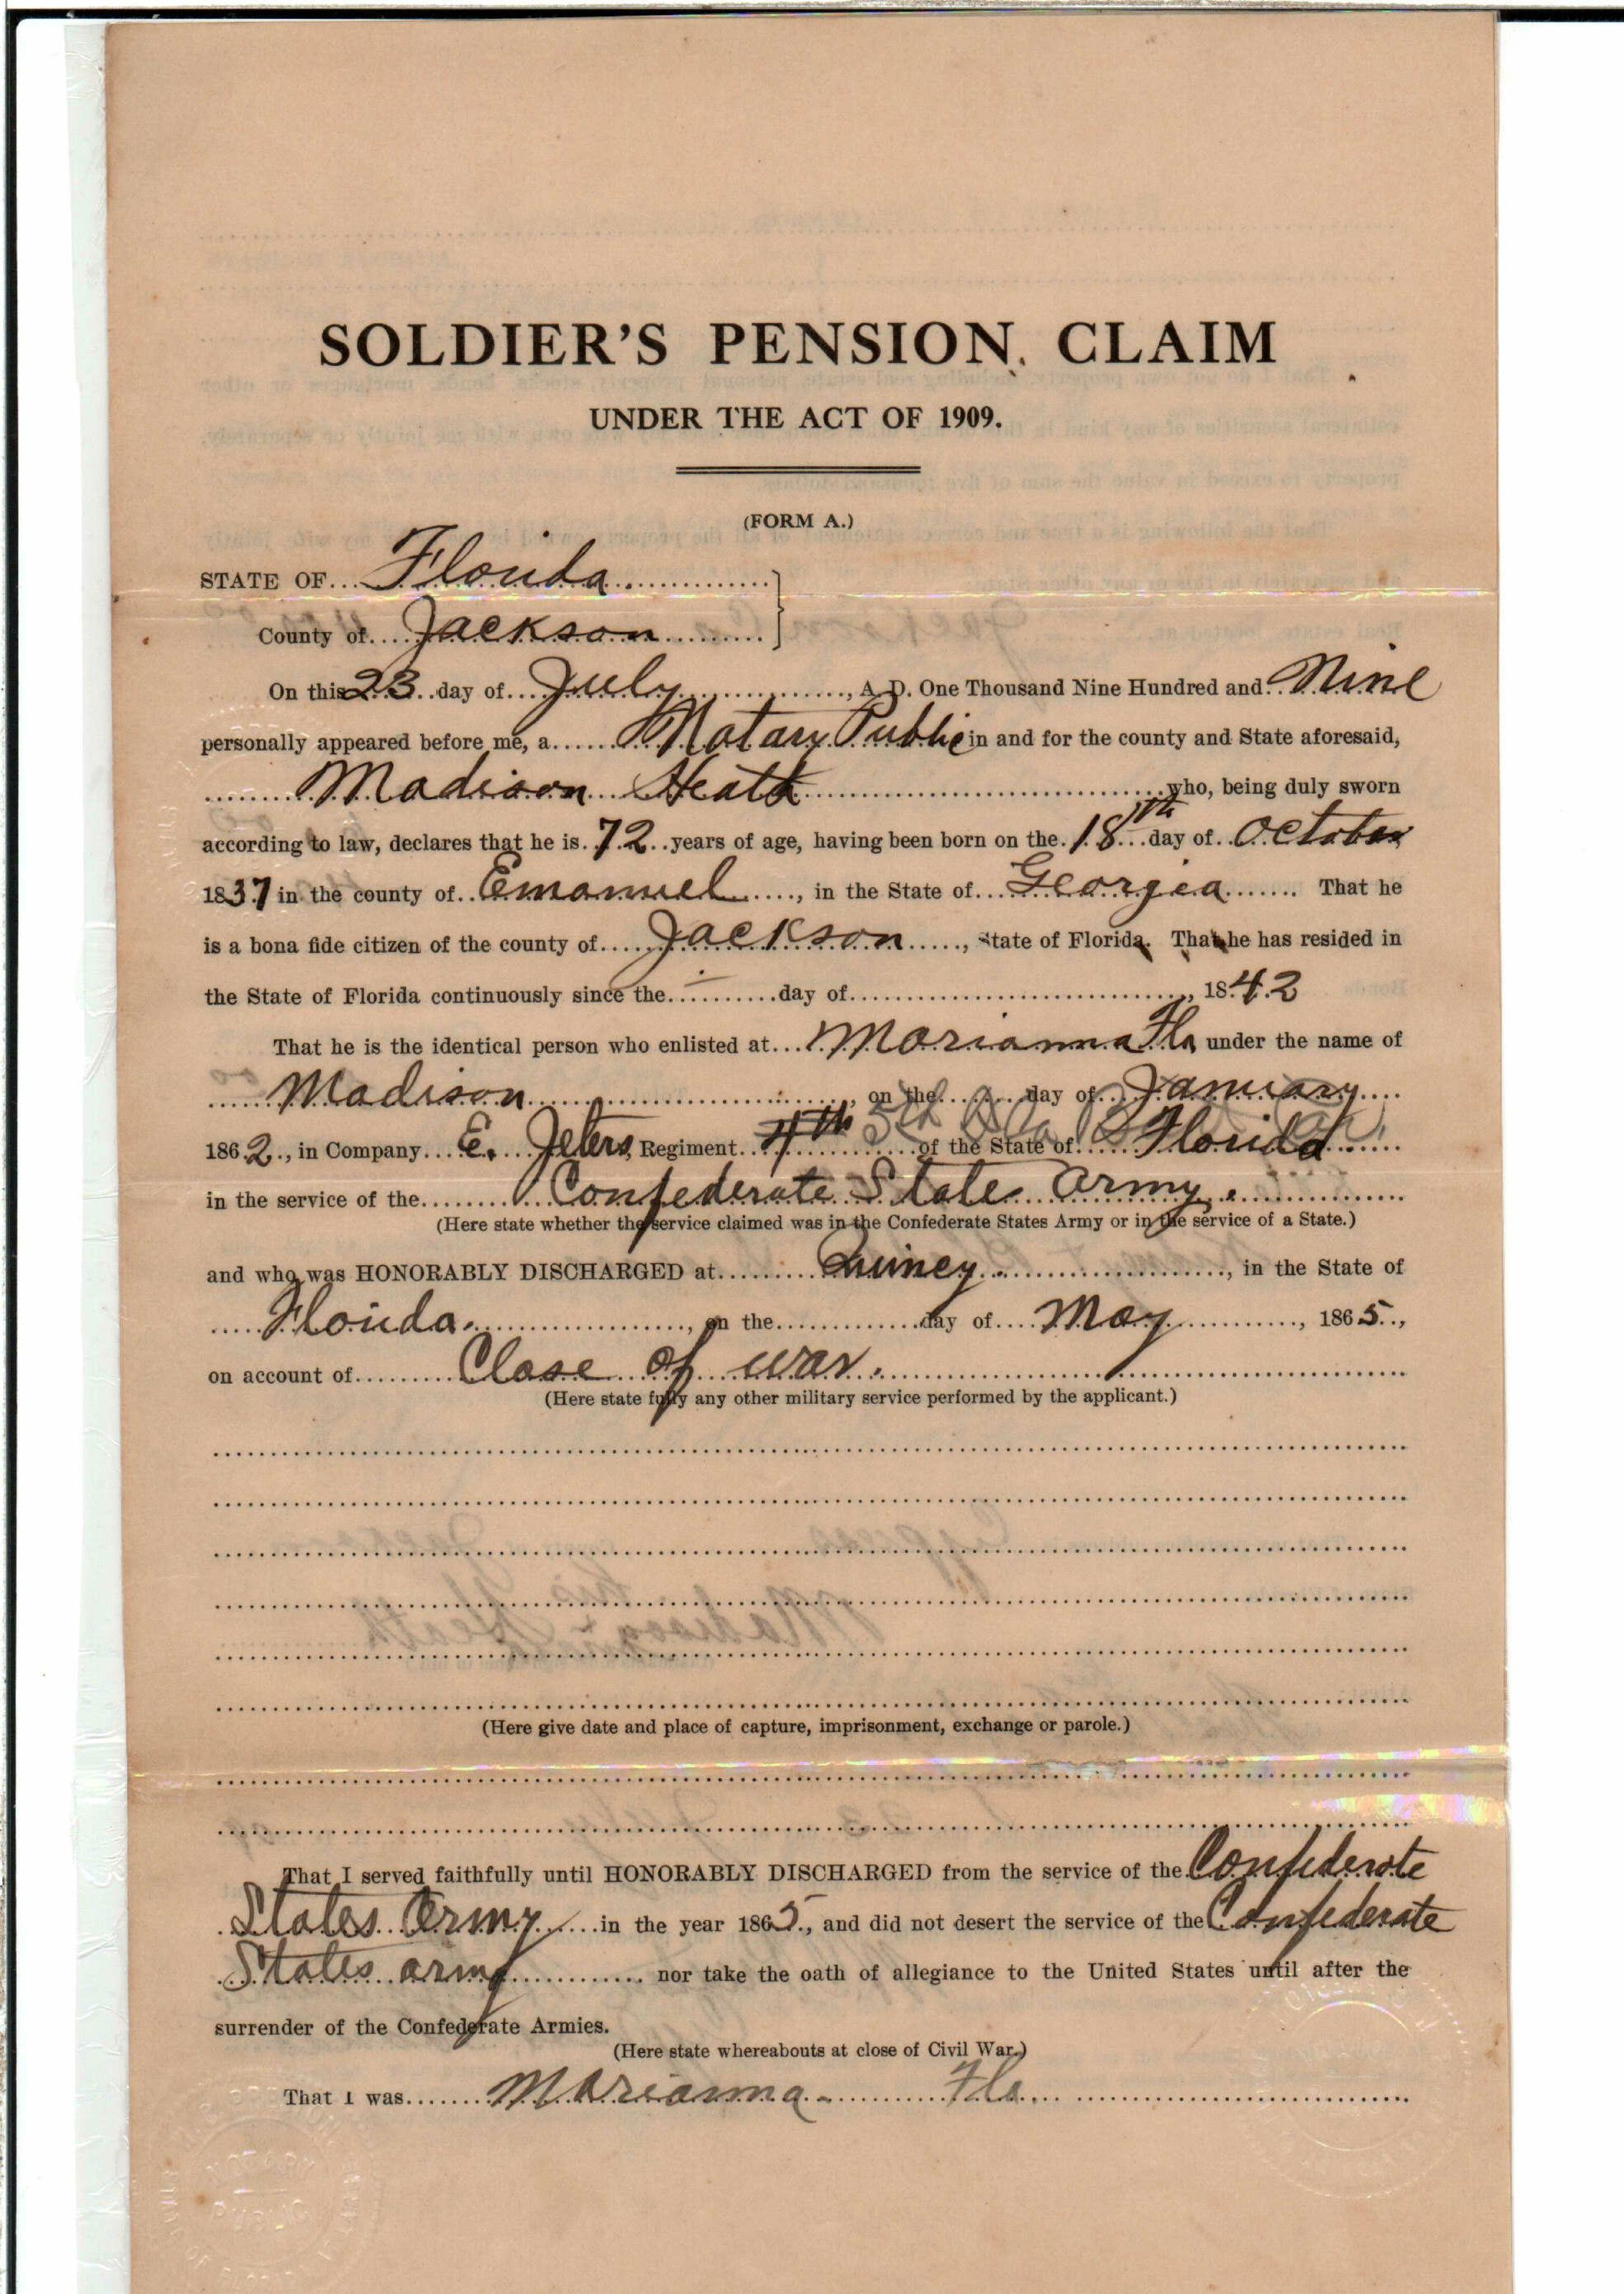 SOLDIER'S PENSION CLAIM
UNDER THE ACT OF 1909.
(FORM A.)
STATE OF Florida
County of Jackson
On this 23 day of July, A. D. One Thousand Nine Hundred and Nine
personally appeared before me, a Notary Public in and for the county and State aforesaid,
Madison Heath who, being duly sworn
according to law, declares that he is 72 years of age, having been born on the 18th day of October
1837 in the county of Emanuel, in the State of Georgia. That he
is a bona fide citizen of the county of Jackson, State of Florida. That he has resided in
the State of Florida continuously since the day of, 1842
That he is the identical person who enlisted at Marianna Fla under the name of
Madison, on the day of January
1862., in Company E. Jeters, Regiment 4th 5th of the State of Florida
in the service of the Confederate States Army.
(Here state whether the service claimed was in the Confederate States Army or in the service of a State.)
and who was HONORABLY DISCHARGED at Quincy, in the State of
Florida, on the day of May, 1865.,
on account of Close of war.
(Here state fully any other military service performed by the applicant.)
(Here give date and place of capture, imprisonment, exchange or parole.)
That I served faithfully until HONORABLY DISCHARGED from the service of the Confederate
States Army in the year 1865., and did not desert the service of the Confederate
States army nor take the oath of allegiance to the United States until after the
surrender of the Confederate Armies.
(Here state whereabouts at close of Civil War.)
That I was Marianna Fla.
NOTARY
PUBLIC